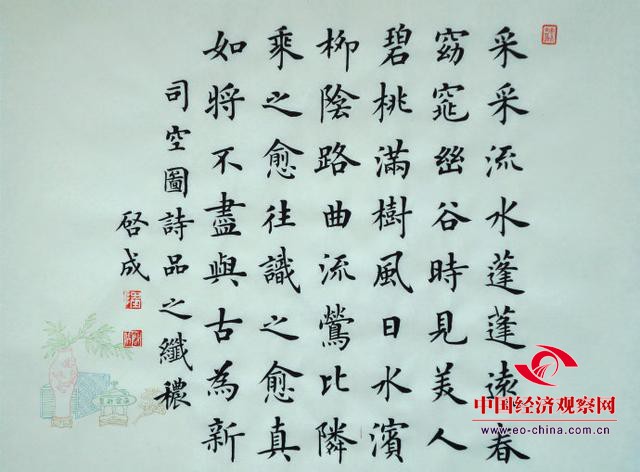 采采流水蓬蓬遠春
窈窕幽谷時見美人
碧桃滿樹風日水濱
柳陰路曲流鶯比隣
乘之愈往識之愈真
如將不盡與古為新
司空圖詩品之纖穠
啓成
中国经济观察网
www.eo-china.com.cn